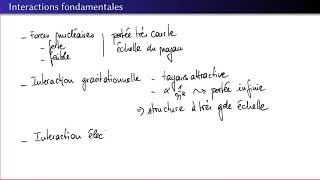 Interactions fondamentales
- Forces nucléaires | portée très courte
- forte | échelle du noyau
- faible
- Interaction gravitationnelle - toujours attractive
- α 1/r² ⇝ portée infinie
⇒ structure à très gde échelle
- Interaction élec